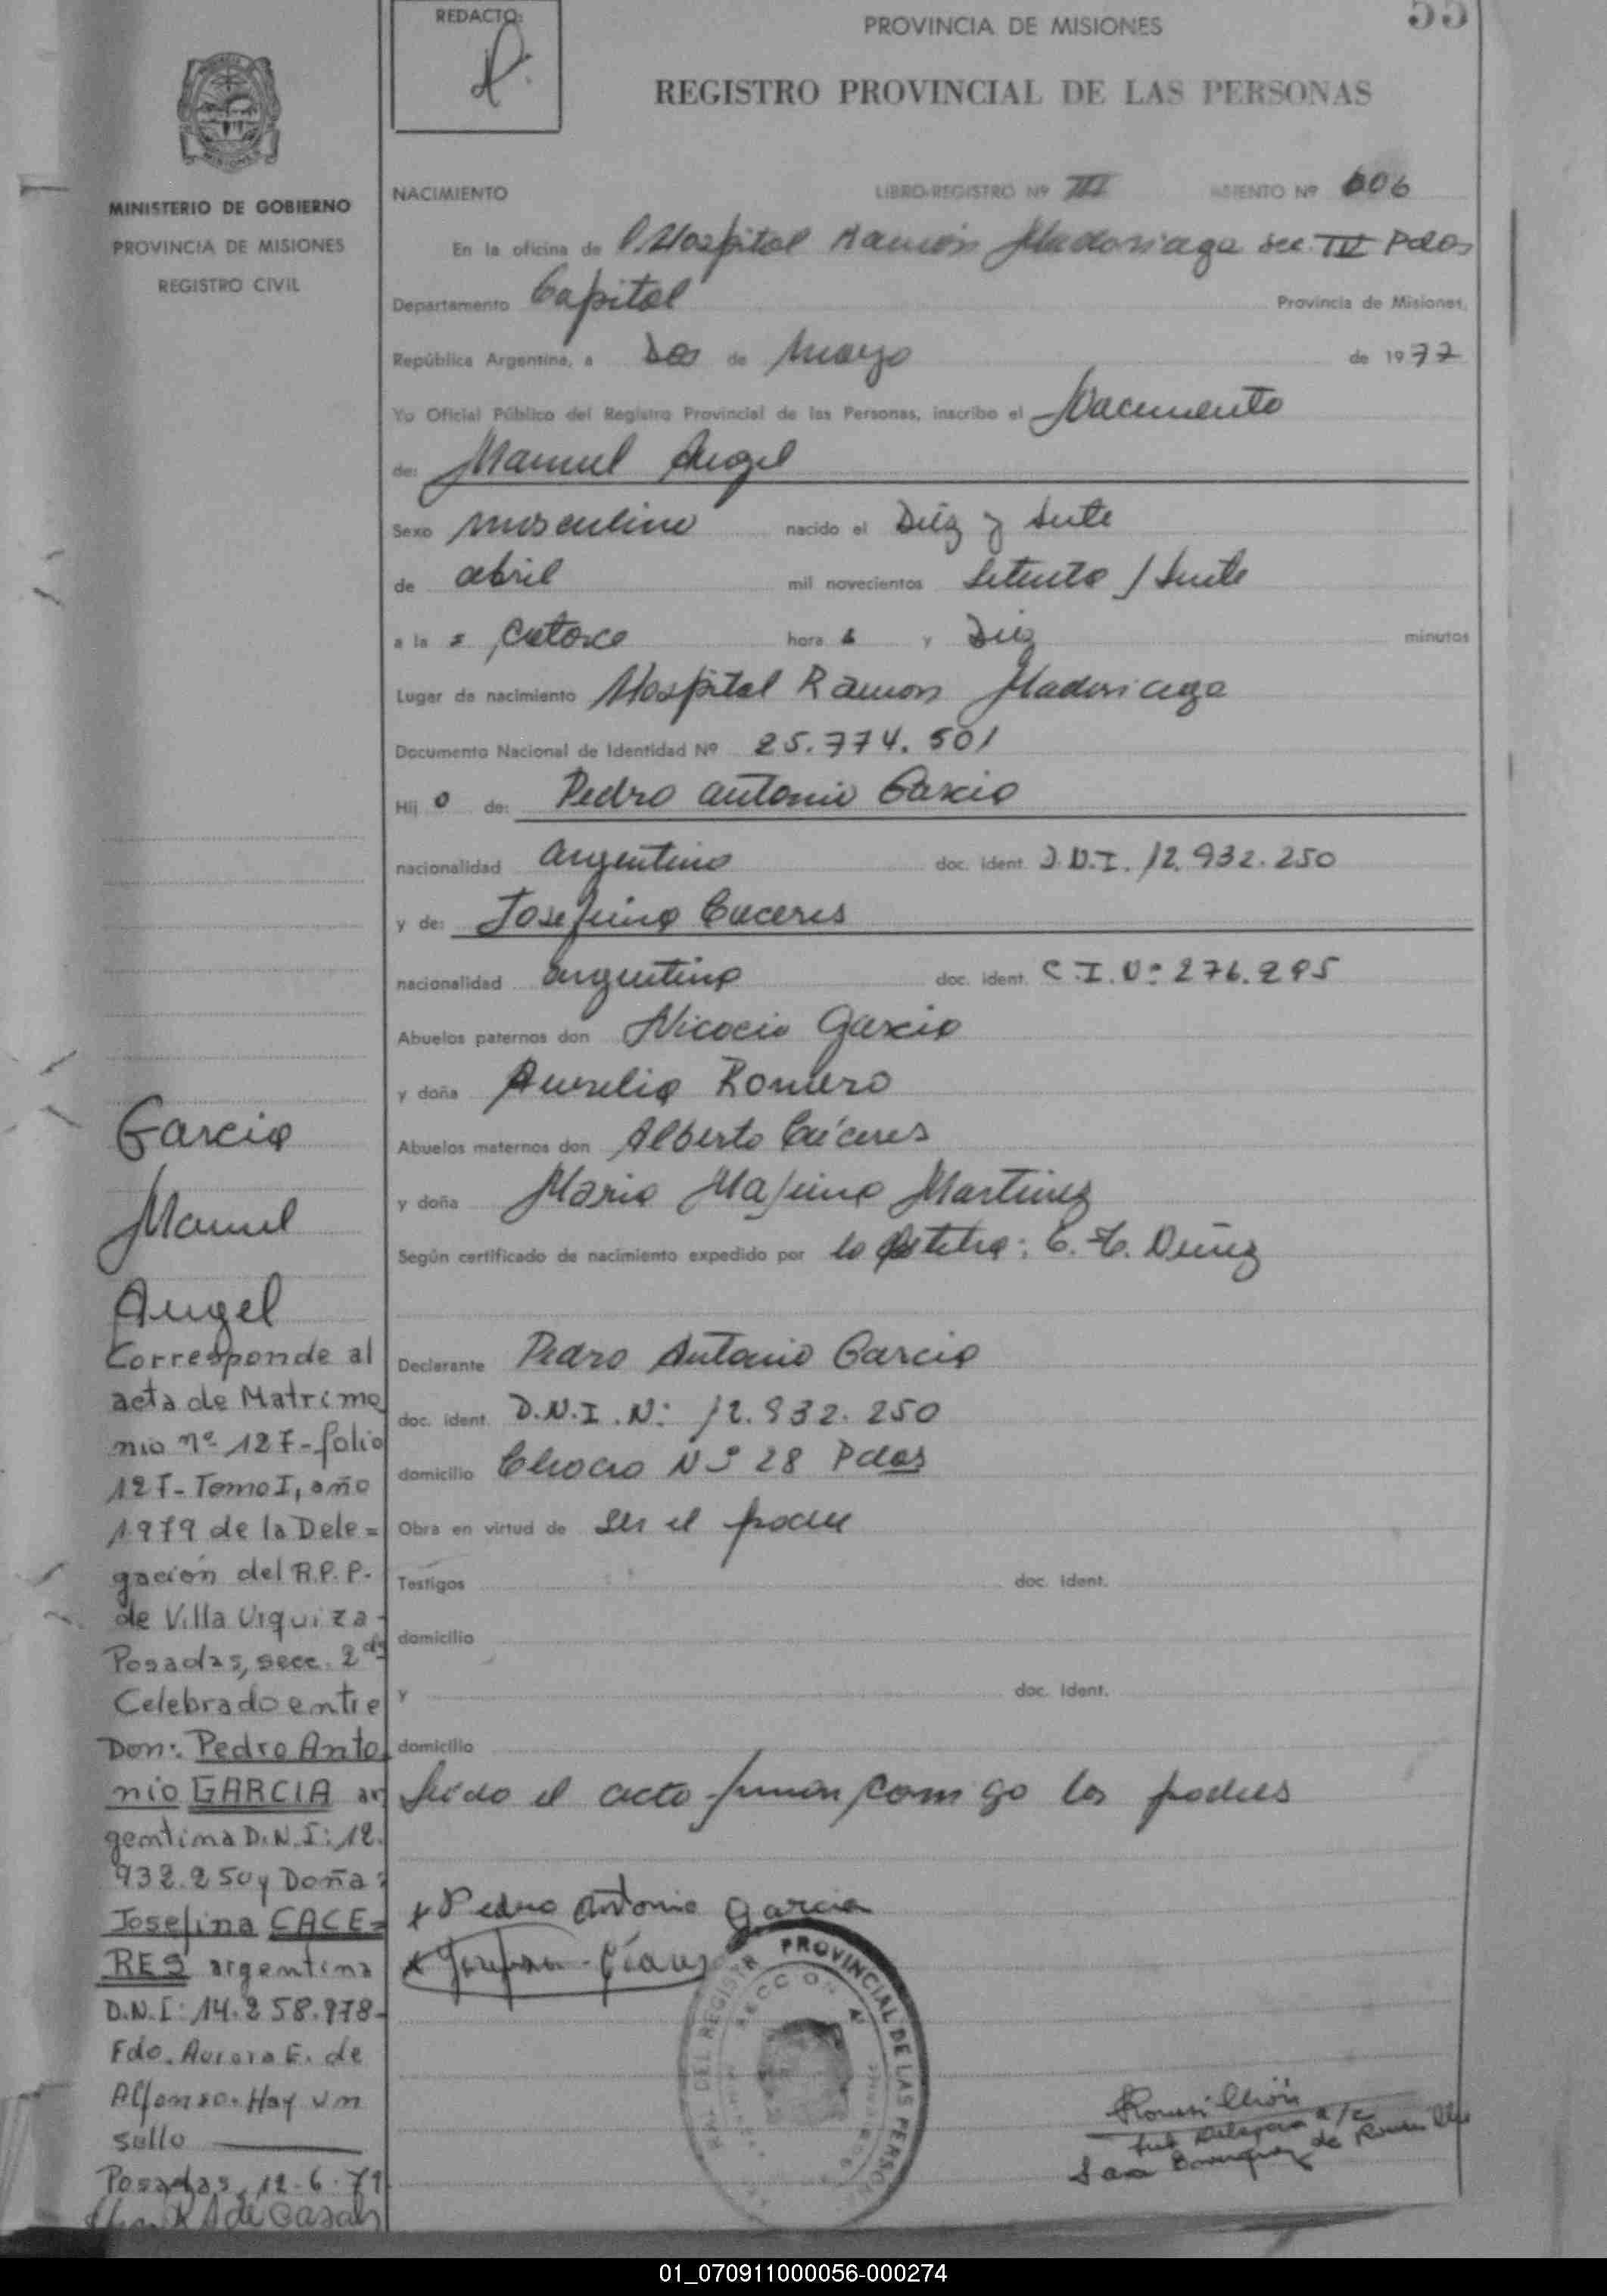 REDACTO:
PROVINCIA DE MISIONES
55
REGISTRO PROVINCIAL DE LAS PERSONAS
MISIONES
MINISTERIO DE GOBIERNO
PROVINCIA DE MISIONES
REGISTRO CIVIL
NACIMIENTO LIBRO-REGISTRO Nº III ASIENTO Nº 606
En la oficina de Hospital Ramón Madariaga sec. IV Pdas
Departamento Capital Provincia de Misiones,
República Argentina, a Dos de Mayo de 1977
Yo Oficial Público del Registro Provincial de las Personas, inscribo el Nacimiento
de: Manuel Angel
Sexo masculino nacido el Diez y siete
de abril mil novecientos setenta / siete
a la s catorce hora s y Diez minutos
Lugar de nacimiento Hospital Ramon Madariaga
Documento Nacional de Identidad Nº 25.774.501
Hij o de: Pedro antonio Garcia
nacionalidad argentino doc. ident. D.N.I. 12.932.250
y de: Josefina Caceres
nacionalidad argentina doc. ident. C.I. Nº 276.295
Abuelos paternos don Nicocio Garcia
y doña Aurelia Romero
Abuelos maternos don Alberto Cáceres
y doña Maria Martinez
Según certificado de nacimiento expedido por la
Declarante Pedro Antonio Garcia
doc. ident. D.N.I. N: 12.932.250
domicilio Chacra Nº 28 Pdas
Obra en virtud de ser el padre
Testigos doc. ident.
domicilio
y doc. ident.
domicilio
Leido el acta firman comigo los padres
x Pedro Antonio Garcia
x
DEL REGISTR PROVINCIAL DE LAS PERSONA
SECCION 4
Garcia
Manuel
Angel
Corresponde al
acta de Matrimo
nio nº 127-folio
127-Tomo I, año
1979 de la Dele=
gación del R.P.P.
de Villa Urquiza-
Posadas, secc. 2da
Celebrado entre
Don: Pedro Anto
nio GARCIA ar
gentina D.N.I: 12.
932.250 y Doña:
Josefina CACE=
RES argentina
D.N.I: 14.258.978-
Fdo. Aurora E. de
Alfonso. Hay un
sello
Posadas, 12-6-79
de Casals
01_070911000056-000274